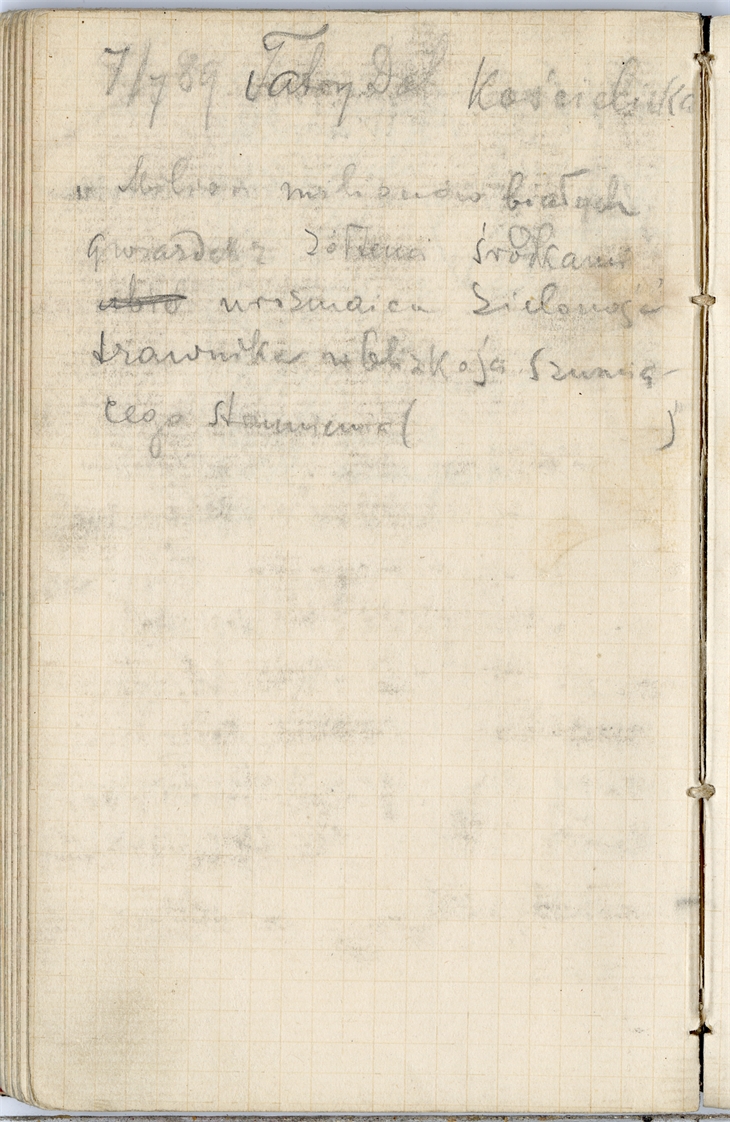 7/7 89 Tatry Dol Kościeliska
milionów białych
gwiazdek z żółtemi środkami
urozmaica zieloność
trawnika w blizkości szumią-
cego strumienia ( )